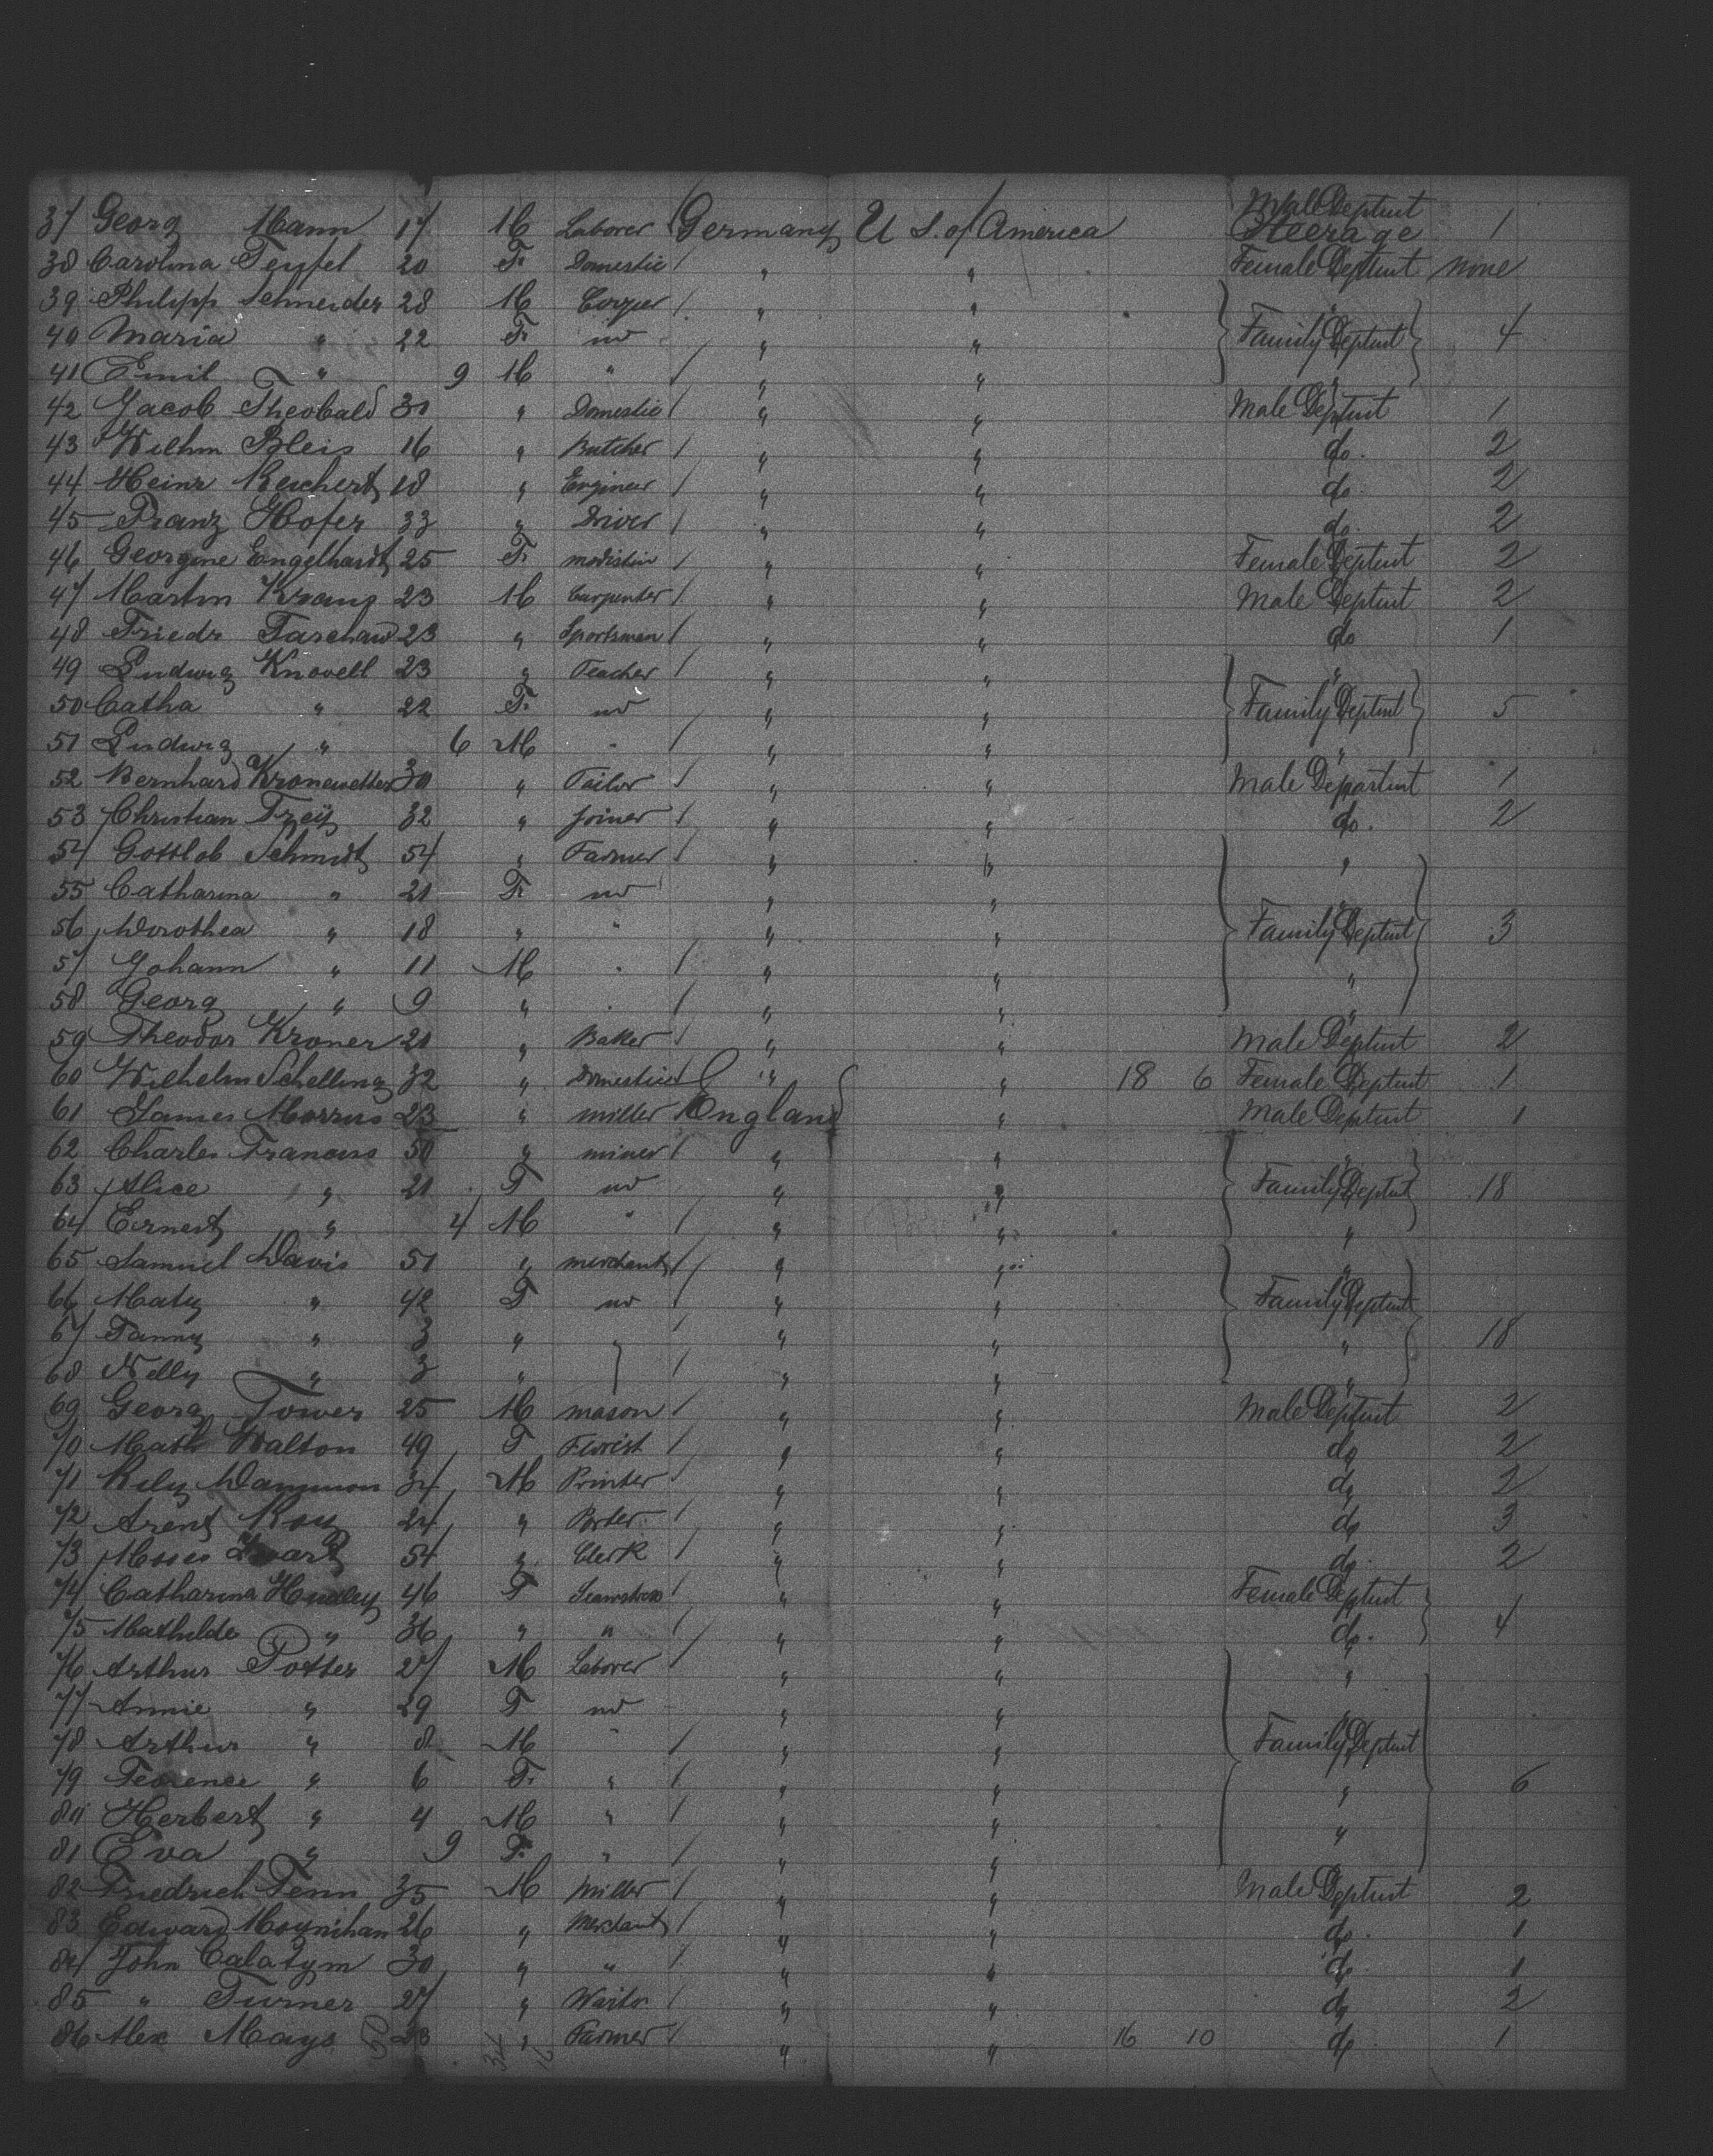 37 Georg Mann 17 M Laborer / Germany U S. of America Male Deptmt Steerage 1
38 Carolina Teufel 20 F. Domestic / " " Female Deptmt none
39 Philipp Schneider 28 M / " " "
40 Maria " 22 F. no " " Family Deptmt 4
41 Emil " 9 M " / " " "
42 Jacob Theobald 31 " Domestic / " " Male Deptmt 1
43 Wilhm Bleis 16 " Butcher / " " do. 2
44 Heinr Reichert 18 " Engineer / " " do. 2
45 Franz Hofer 33 " Driver / " " do. 2
46 Georgine Engelhardt 25 F. modistin / " " Female Deptmt 2
47 Martin Kraus 23 M Carpenter / " " Male Deptmt 2
48 Friedr 23 " Sportsman / " " do 1
49 Ludwig Knovell 23 " Teacher / " " "
50 Catha " 22 F. no " " Family Deptmt 5
51 Ludwig " 6 M " / " " "
52 Bernhard Kronewetter 30 " Tailor / " " Male Departmt 1
53 Christian Frey 32 " Joiner / " " do. 2
54 Gottlob Schmidt 54 " Farmer / " " "
55 Catharina " 21 F. no " " "
56 Dorothea " 18 " " " " Family Deptmt 3
57 Johann " 11 M " / " " "
58 Georg " 9 " " / " " "
59 Theodor Kroner 21 " Baker / " " Male Deptmt 2
60 Wilhelm Schelling 32 " Domestic / " " 18 6 Female Deptmt 1
61 James Morris 23 " miller / England " Male Deptmt 1
62 Charles Francis 50 " miner / " " "
63 Alice " 21 F no " " Family Deptmt 18
64 Ernest " 4 M " / " " "
65 Samuel Davis 51 " merchant / " " "
66 Maty " 42 F no / " " Family Deptmt
67 Fanny " 3 " " / " " " 18
68 Nelly " 3 " / " " "
69 Georg Tower 25 M mason / " " Male Deptmt 2
70 Walton 49 F Florist / " " do 2
71 34 M Printer / " " do 2
72 Arent Roy 24 " Porter / " " do 3
73 Moses 54 " Clerk / " " do. 2
74 Catharina 46 F Seamstress / " " Female Deptmt
75 Mathilde " 36 " " / " " do. 4
76 Arthur Potter 27 M Laborer / " " "
77 Annie " 29 F no " " "
78 Arthur " 8 M " / " " Family Deptmt
79 Florence " 6 F. " / " " " 6
80 Herbert " 4 M " / " " "
81 Eva " 9 F. " / " "
82 Friedrich Fenn 35 M Miller / " " Male Deptmt 2
83 Edward Moynihan 26 " Merchant / " " do. 1
84 John 30 " " / " " do. 1
85 " Turner 27 " Waitor / " " do 2
86 Alex Mays 23 " Farmer / " " 16 10 do. 1
50 34 16